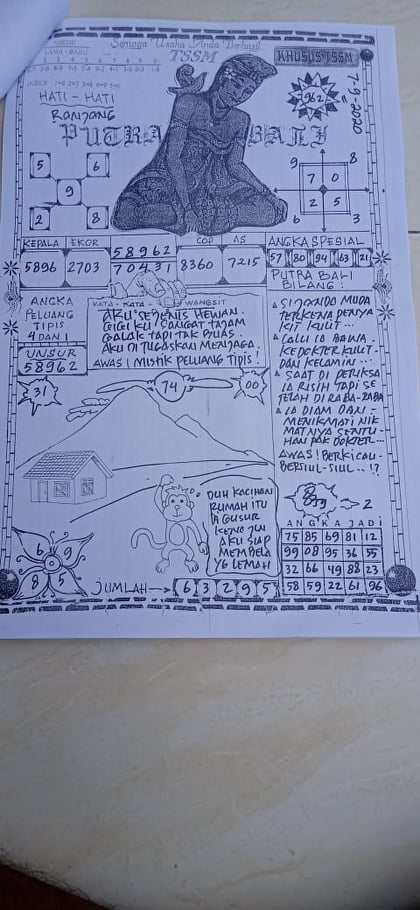 Semoga Usaha Anda Berhasil
TSSM
KHUSUS TSSM
MISTIK
LAMA - BARU
INDEX
HATI - HATI
RANJANG
PUTRA BALI
962
7-9-2020
5 6
9
2 8
9 8
7 0
2 5
6 3
KEPALA EKOR
5896 2703
58962
70431
COP AS
8360 7215
ANGKA SPESIAL
57 80 94 63 21
ANGKA
PELUANG
TIPIS
4 DAN 1
UNSUR
58962
KATA - KATA WANGSIT
AKU SEJENIS HEWAN.
GIGI KU SANGAT TAJAM
GALAK TAPI TAK BUAS.
AKU DI TUGASKAN MENJAGA.
AWAS! MISTIK PELUANG TIPIS!
PUTRA BALI
BILANG:
SI JANDO MUDA
TERKENA PENYA
KIT KULIT...
LALU IA BAWA
KEDOKTER KULIT
DAN KELAMIN...
SAAT DI PERIKSA
IA RISIH TAPI SE
TELAH DI RABA-RABA
IA DIAM DAN
MENIKMATI NIK
MATNYA SENTU-
HAN PAK DOKTER...
AWAS! BERKICAU-
BERSIUL-SIUL..!?
31
74
00
DUH KACIHAN
RUMAH ITU
AKU SIAP
MEMBELA
YG LEMAH
2
ANGKA JADI
75 85 69 81 12
99 08 95 36 55
32 66 49 88 23
58 59 22 61 96
6 9
8 5
JUMLAH → 6 3 2 9 5